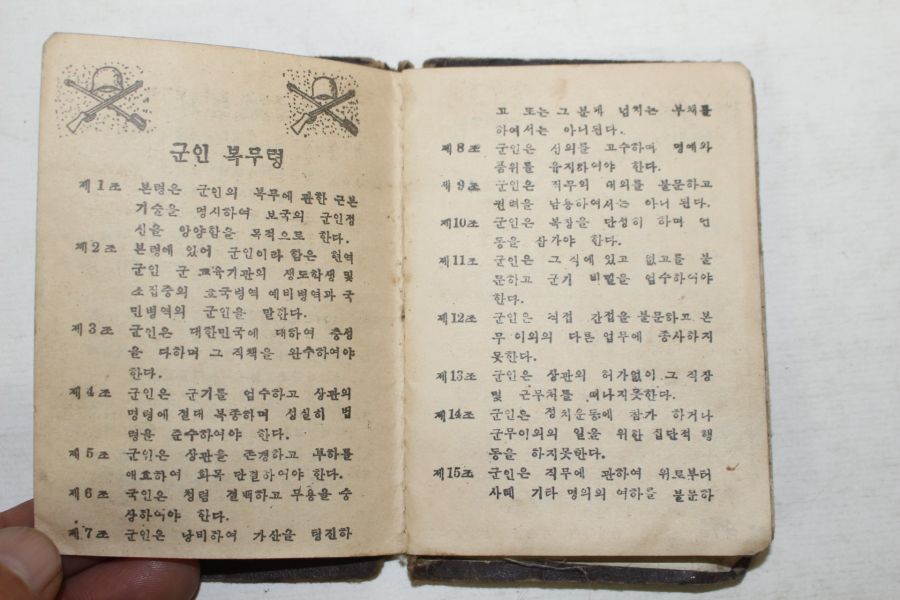 군인 복무령
제1조 본령은 군인의 복무에 관한 근본
기술을 명시하여 보국의 군인정
신을 앙양함을 목적으로 한다.
제2조 본령에 있어 군인이라 함은 현역
군인 군 교육기관의 생도학생 및
소집중의 호국병역 예비병역과 국
민병역의 군인을 말한다.
제3조 군인은 대한민국에 대하여 충성
을 다하며 그 직책을 완수하여야
한다.
제4조 군인은 군기를 엄수하고 상관의
명령에 절대 복종하며 성실히 법
령을 준수하여야 한다.
제5조 군인은 상관을 존경하고 부하를
애호하여 화목 단결하여야 한다.
제6조 국인은 청렴 결백하고 무용을 숭
상하여야 한다.
제7조 군인은 낭비하여 가산을 탕진하
고 또는 그 분에 넘치는 부채를
하여서는 아니된다.
제8조 군인은 신의를 고수하며 명예와
품위를 유지하여야 한다.
제9조 군인은 직무의 내외를 불문하고
권력을 남용하여서는 아니 된다.
제10조 군인은 복장을 단정히 하며 언
동을 삼가야 한다.
제11조 군인은 그 직에 있고 없고를 불
문하고 군기 비밀을 엄수하여야
한다.
제12조 군인은 직접 간접을 불문하고 본
무 이외의 다른 업무에 종사하지
못한다.
제13조 군인은 상관의 허가없이 그 직장
및 근무처를 떠나지못한다.
제14조 군인은 정치운동에 참가 하거나
군무이외의 일을 위한 집단적 행
동을 하지못한다.
제15조 군인은 직무에 관하여 위로부터
사례 기타 명의의 여하를 불문하